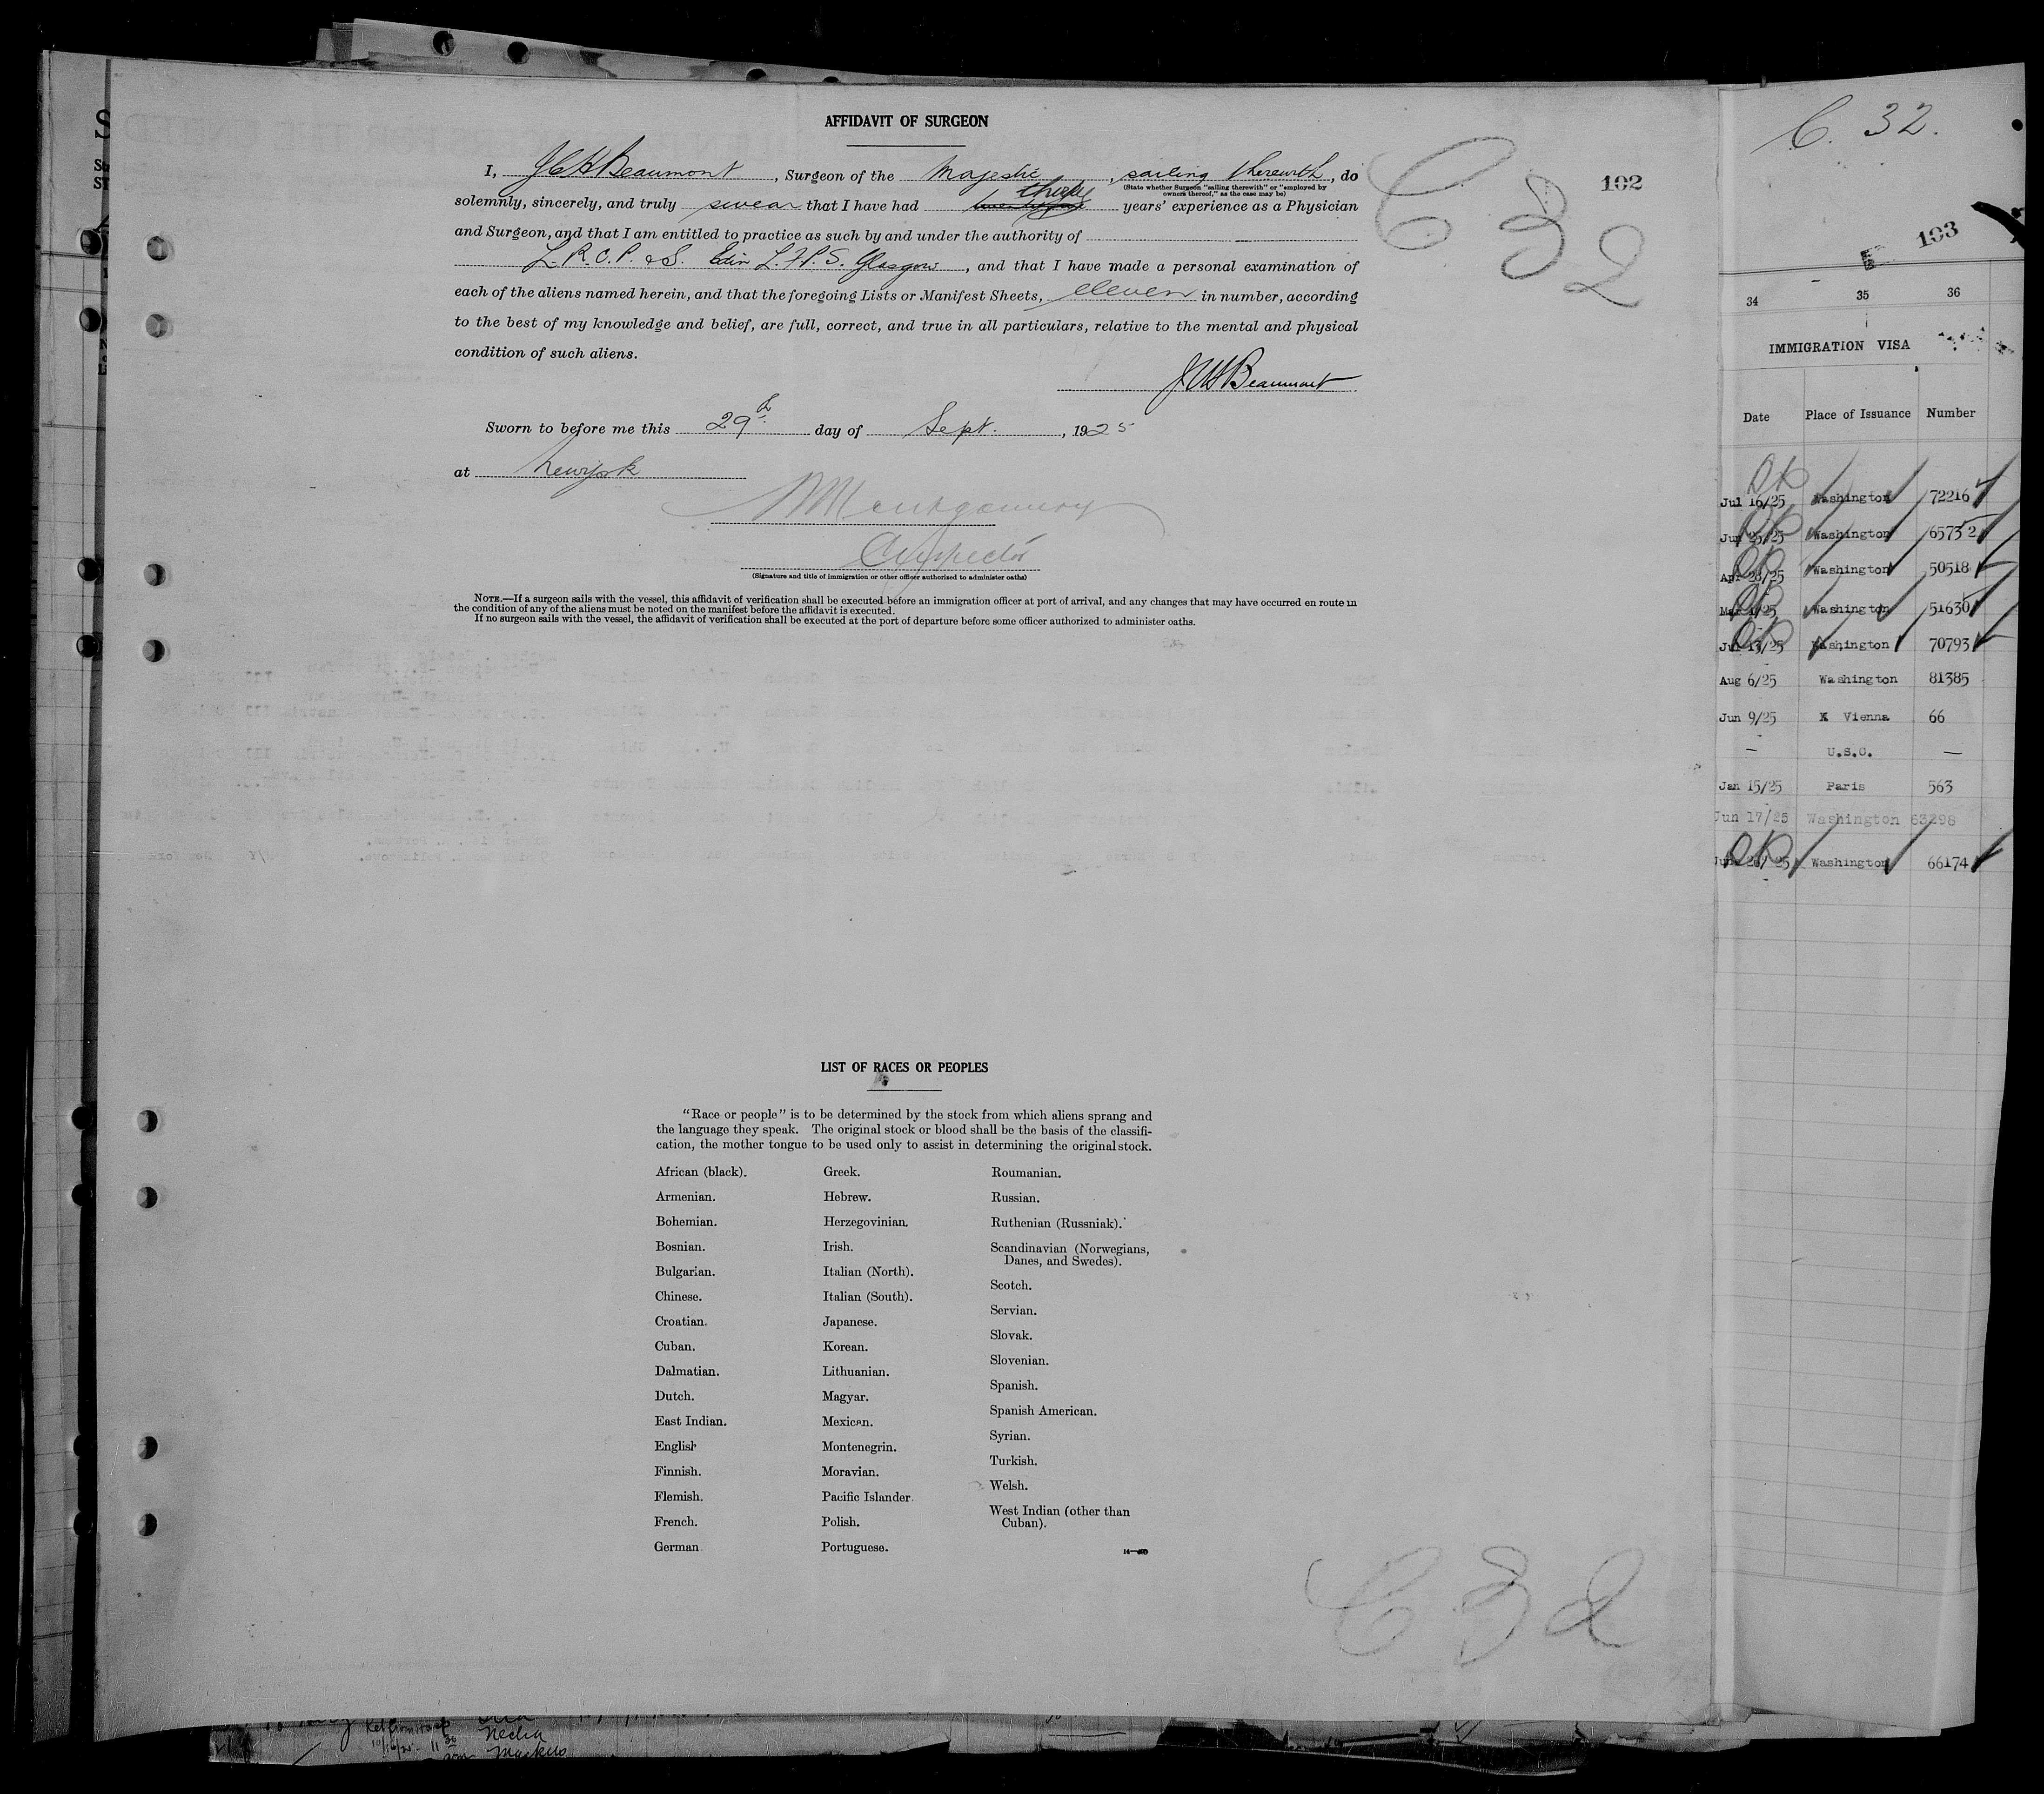 AFFIDAVIT OF SURGEON
I, J C H Beaumont, Surgeon of the Majestic, sailing therewith, do
(State whether Surgeon "sailing therewith" or "employed by
owners thereof," as the case may be)
thirty
solemnly, sincerely, and truly swear that I have had years' experience as a Physician
and Surgeon, and that I am entitled to practice as such by and under the authority of
L. R. C. P. & S. Edin L. F. P. S. Glasgow, and that I have made a personal examination of
each of the aliens named herein, and that the foregoing Lists or Manifest Sheets, eleven in number, according
to the best of my knowledge and belief, are full, correct, and true in all particulars, relative to the mental and physical
condition of such aliens.
J C H Beaumont
Sworn to before me this 29th day of Sept., 1925
at New York
Montgomery
Inspector
(Signature and title of immigration or other officer authorized to administer oaths)
NOTE.—If a surgeon sails with the vessel, this affidavit of verification shall be executed before an immigration officer at port of arrival, and any changes that may have occurred en route in
the condition of any of the aliens must be noted on the manifest before the affidavit is executed.
If no surgeon sails with the vessel, the affidavit of verification shall be executed at the port of departure before some officer authorized to administer oaths.
C 32
102
LIST OF RACES OR PEOPLES
"Race or people" is to be determined by the stock from which aliens sprang and
the language they speak. The original stock or blood shall be the basis of the classifi-
cation, the mother tongue to be used only to assist in determining the original stock.
African (black).
Armenian.
Bohemian.
Bosnian.
Bulgarian.
Chinese.
Croatian.
Cuban.
Dalmatian.
Dutch.
East Indian.
English
Finnish.
Flemish.
French.
German.
Greek.
Hebrew.
Herzegovinian.
Irish.
Italian (North).
Italian (South).
Japanese.
Korean.
Lithuanian.
Magyar.
Mexican.
Montenegrin.
Moravian.
Pacific Islander.
Polish.
Portuguese.
Roumanian.
Russian.
Ruthenian (Russniak).
Scandinavian (Norwegians,
Danes, and Swedes).
Scotch.
Servian.
Slovak.
Slovenian.
Spanish.
Spanish American.
Syrian.
Turkish.
Welsh.
West Indian (other than
Cuban).
C 32
C. 32.
103
34 35 36
IMMIGRATION VISA
Date Place of Issuance Number
OK
Jul 16/25 Washington 72216
OK
Jun 25/25 Washington 65732
OK
Apr 28/25 Washington 50518
OK
Washington 51630
OK
Jul 13/25 Washington 70793
Aug 6/25 Washington 81385
Jun 9/25 X Vienna 66
— U.S.C. —
Jan 15/25 Paris 563
Jun 17/25 Washington 63298
OK
Washington 66174
Necha
Markus